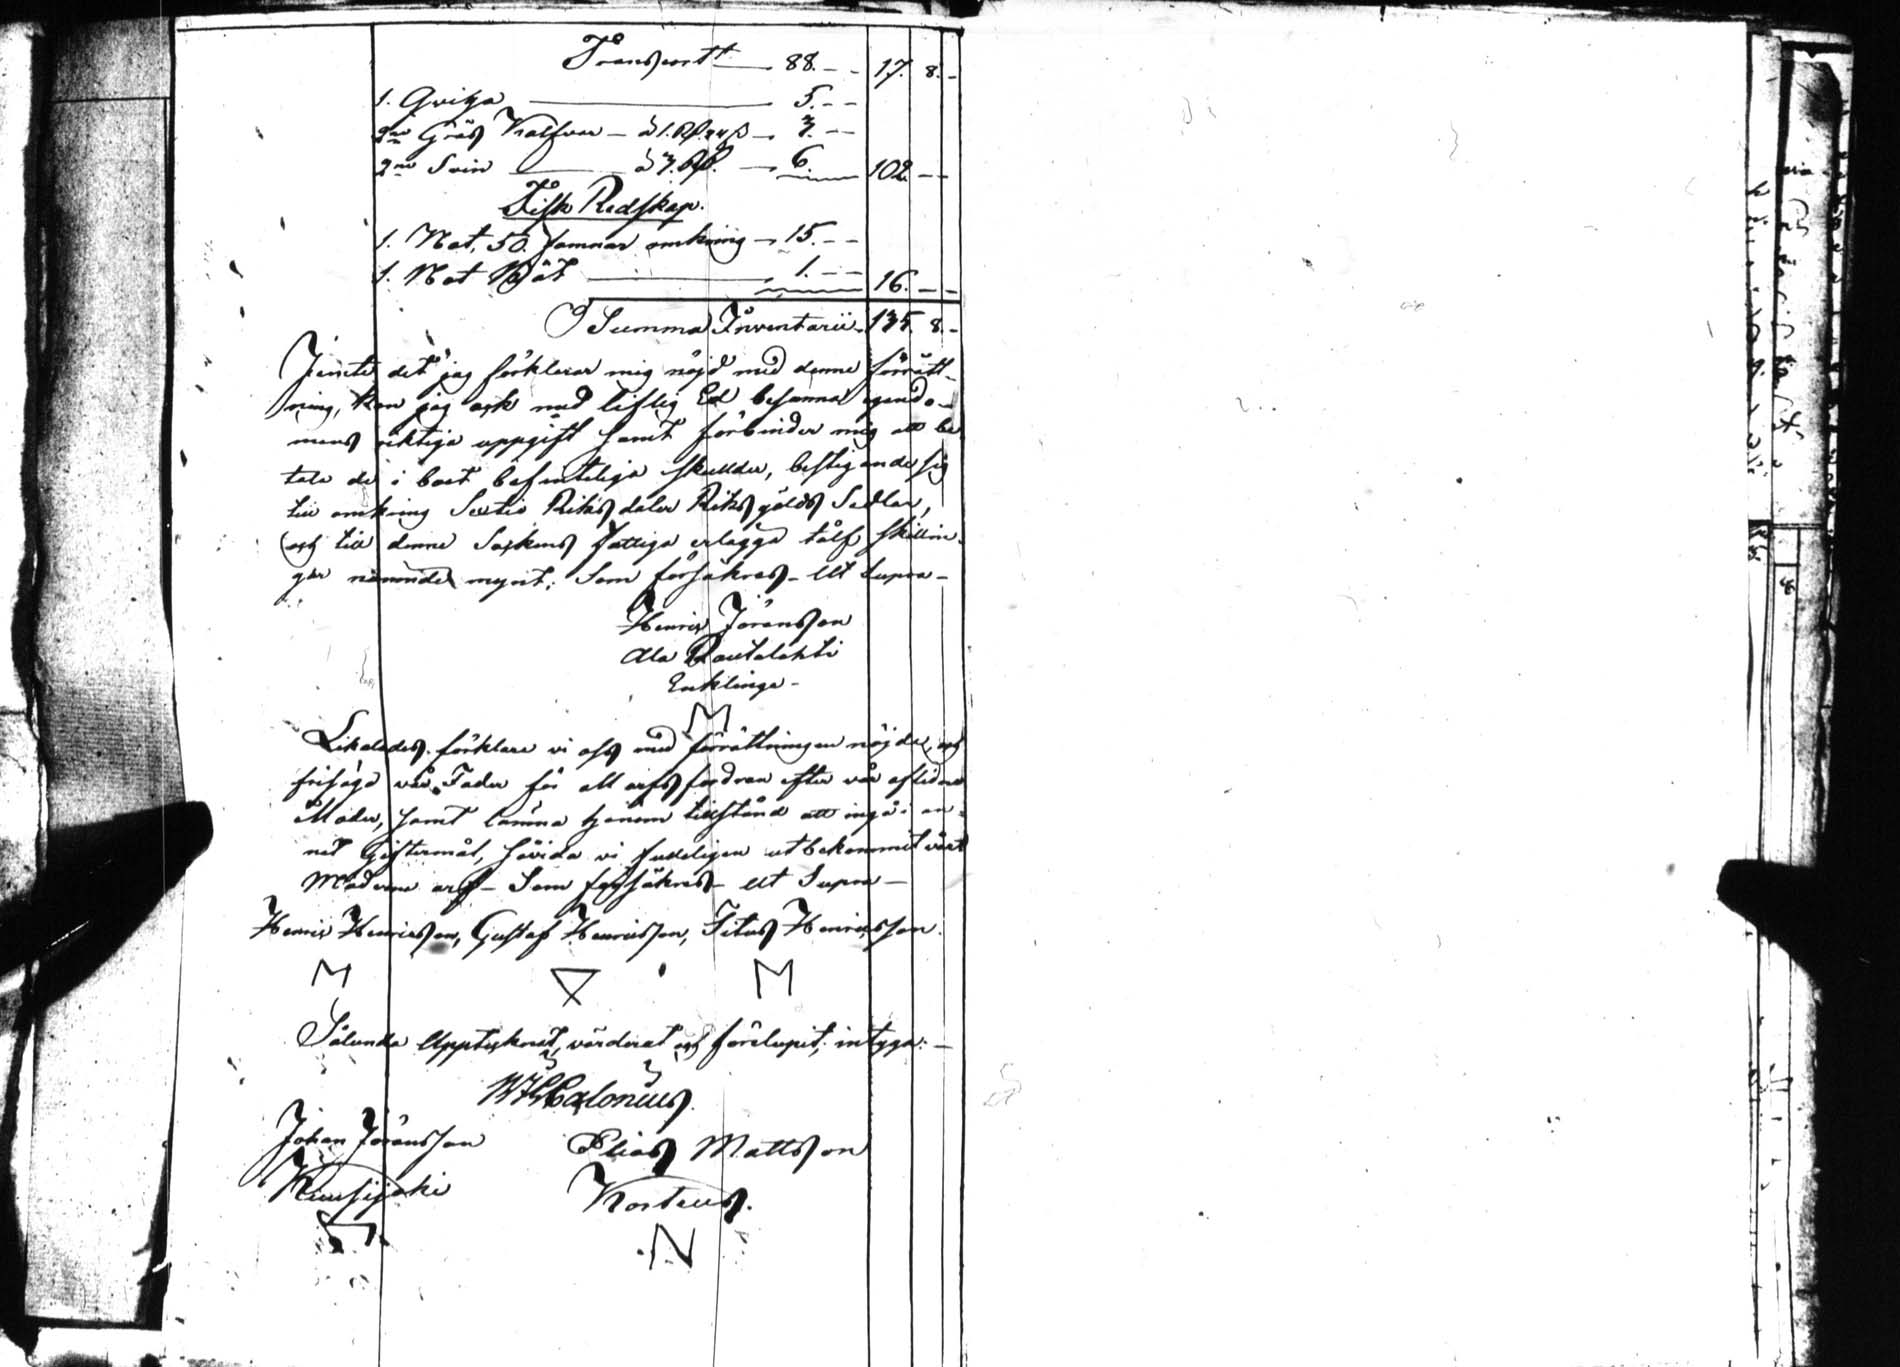 Transport 88.-- 17. 8.-
1. Qviga 5.--
2ne Gräs Kalfvar - à 1. Rd. 24 ß 3.--
2ne Svin à 3. Rd. 6. 102 --
Fisk Redskap.
1. Not, 50. famnar omkring - 15.--
1. Not Båt 1.-- 16.--
Summa Inventarii. 135. 8.-
Jemte det jag förklarar mig nöjd med denne förrätt-
ning, kan jag ock med liflig Ed besanna egendo-
mens riktiga uppgift samt förbinder mig att be
tala de i boet befinteliga skulder, bestigande sig
till omkring Sextio Riksdaler Riksgälds Sedlar,
och till denne Sockens fattiga erlägga tolf skillin-
gar nämnde mynt; Som försäkras - Ut Supra -
Henric Jöransson
Ala Rautalahti
Enklinge -
M
Likaledes förklare vi oss med förrättningen nöjda, och
frisäga vår Fader för all arfs fordran efter vår aflidne
Moder, samt lämna honom tillstånd att ingå i an-
nat Giftermål, såvida vi fulleligen utbekommit vårt
Möderne arf - Som försäkras - Ut Supra -
Henric Henricsson, Gustaf Henricsson, Titus Henricsson.
M M
Sålunda Upptecknat, värderat och förelupit; intyga: -
Calonius.
Johan Jöransson Elias Mattsson
Kuusijoki Korteus.
N